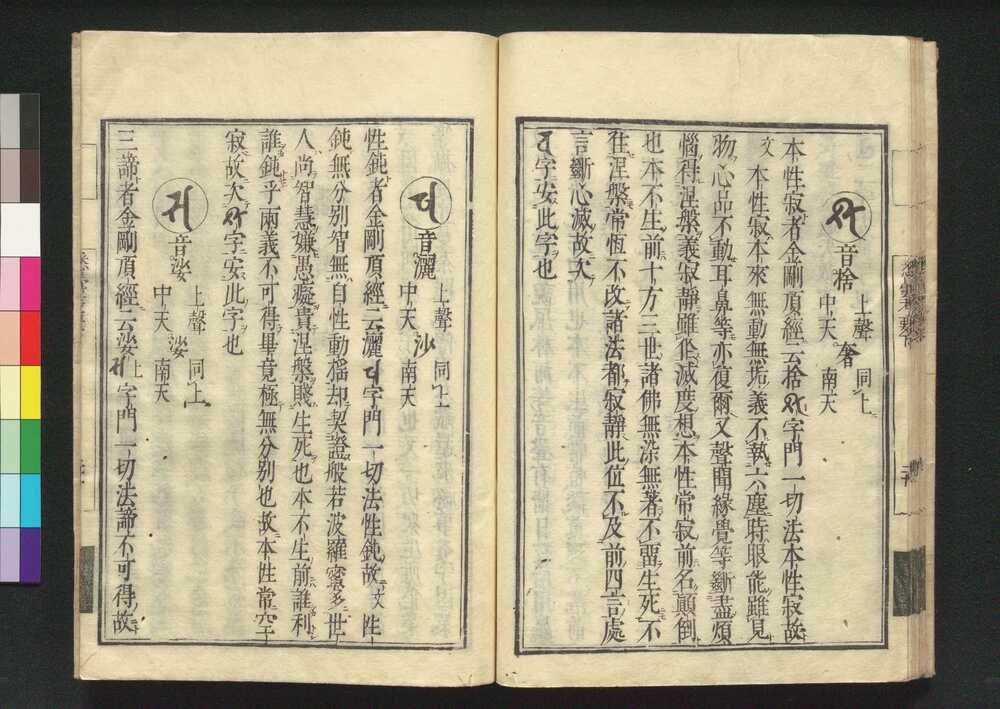 音捨 上聲 中天 奢 同上 南天
本性寂者金剛頂經云捨字門一切法本性寂故
文 本性寂本來無動無垢義不執六塵時眼能雖見
物心品不動耳鼻等亦復爾又聲聞緣覺等斷盡煩
惱得涅槃義寂靜雖作滅度想本性常寂前名顚倒
也本不生前十方三世諸佛無染無著不畱生死不
往涅槃常恆不改諸法都寂靜此位不及前四言處
言斷心滅故次
字安此字也
音灑 上聲 中天 沙 同上 南天
性鈍者金剛頂經云灑字門一切法性鈍故文 性
鈍無分別智無自性動搖却契證般若波羅蜜多世
人尚智慧嫌愚癡貴涅槃賤生死也本不生前誰利
誰鈍乎兩義不可得畢竟極無分别也故本性常空
寂故次字安此字也
音娑 上聲 中天 娑 同上 南天
三諦者金剛頂經云娑上字門一切法諦不可得故